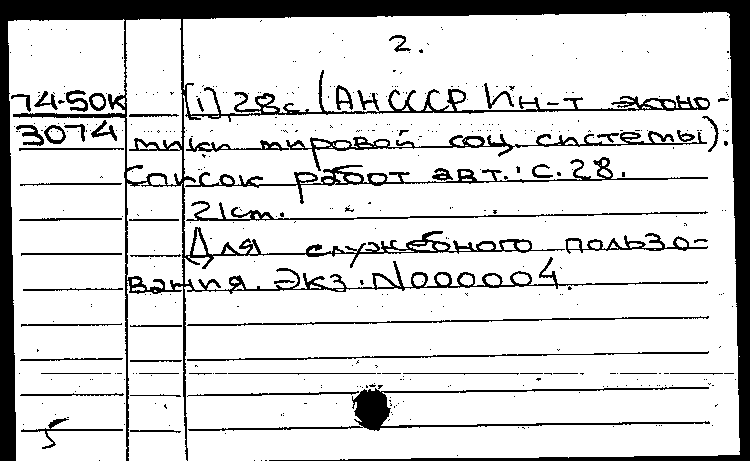 2.
74-50К [1], 28с. (АН СССР Ин-т эконо-
3074 мики мировой соц. системы).
Список работ авт.: с. 28.
21cm.
Для служебного пользо-
вания. Экз. N000004.
5